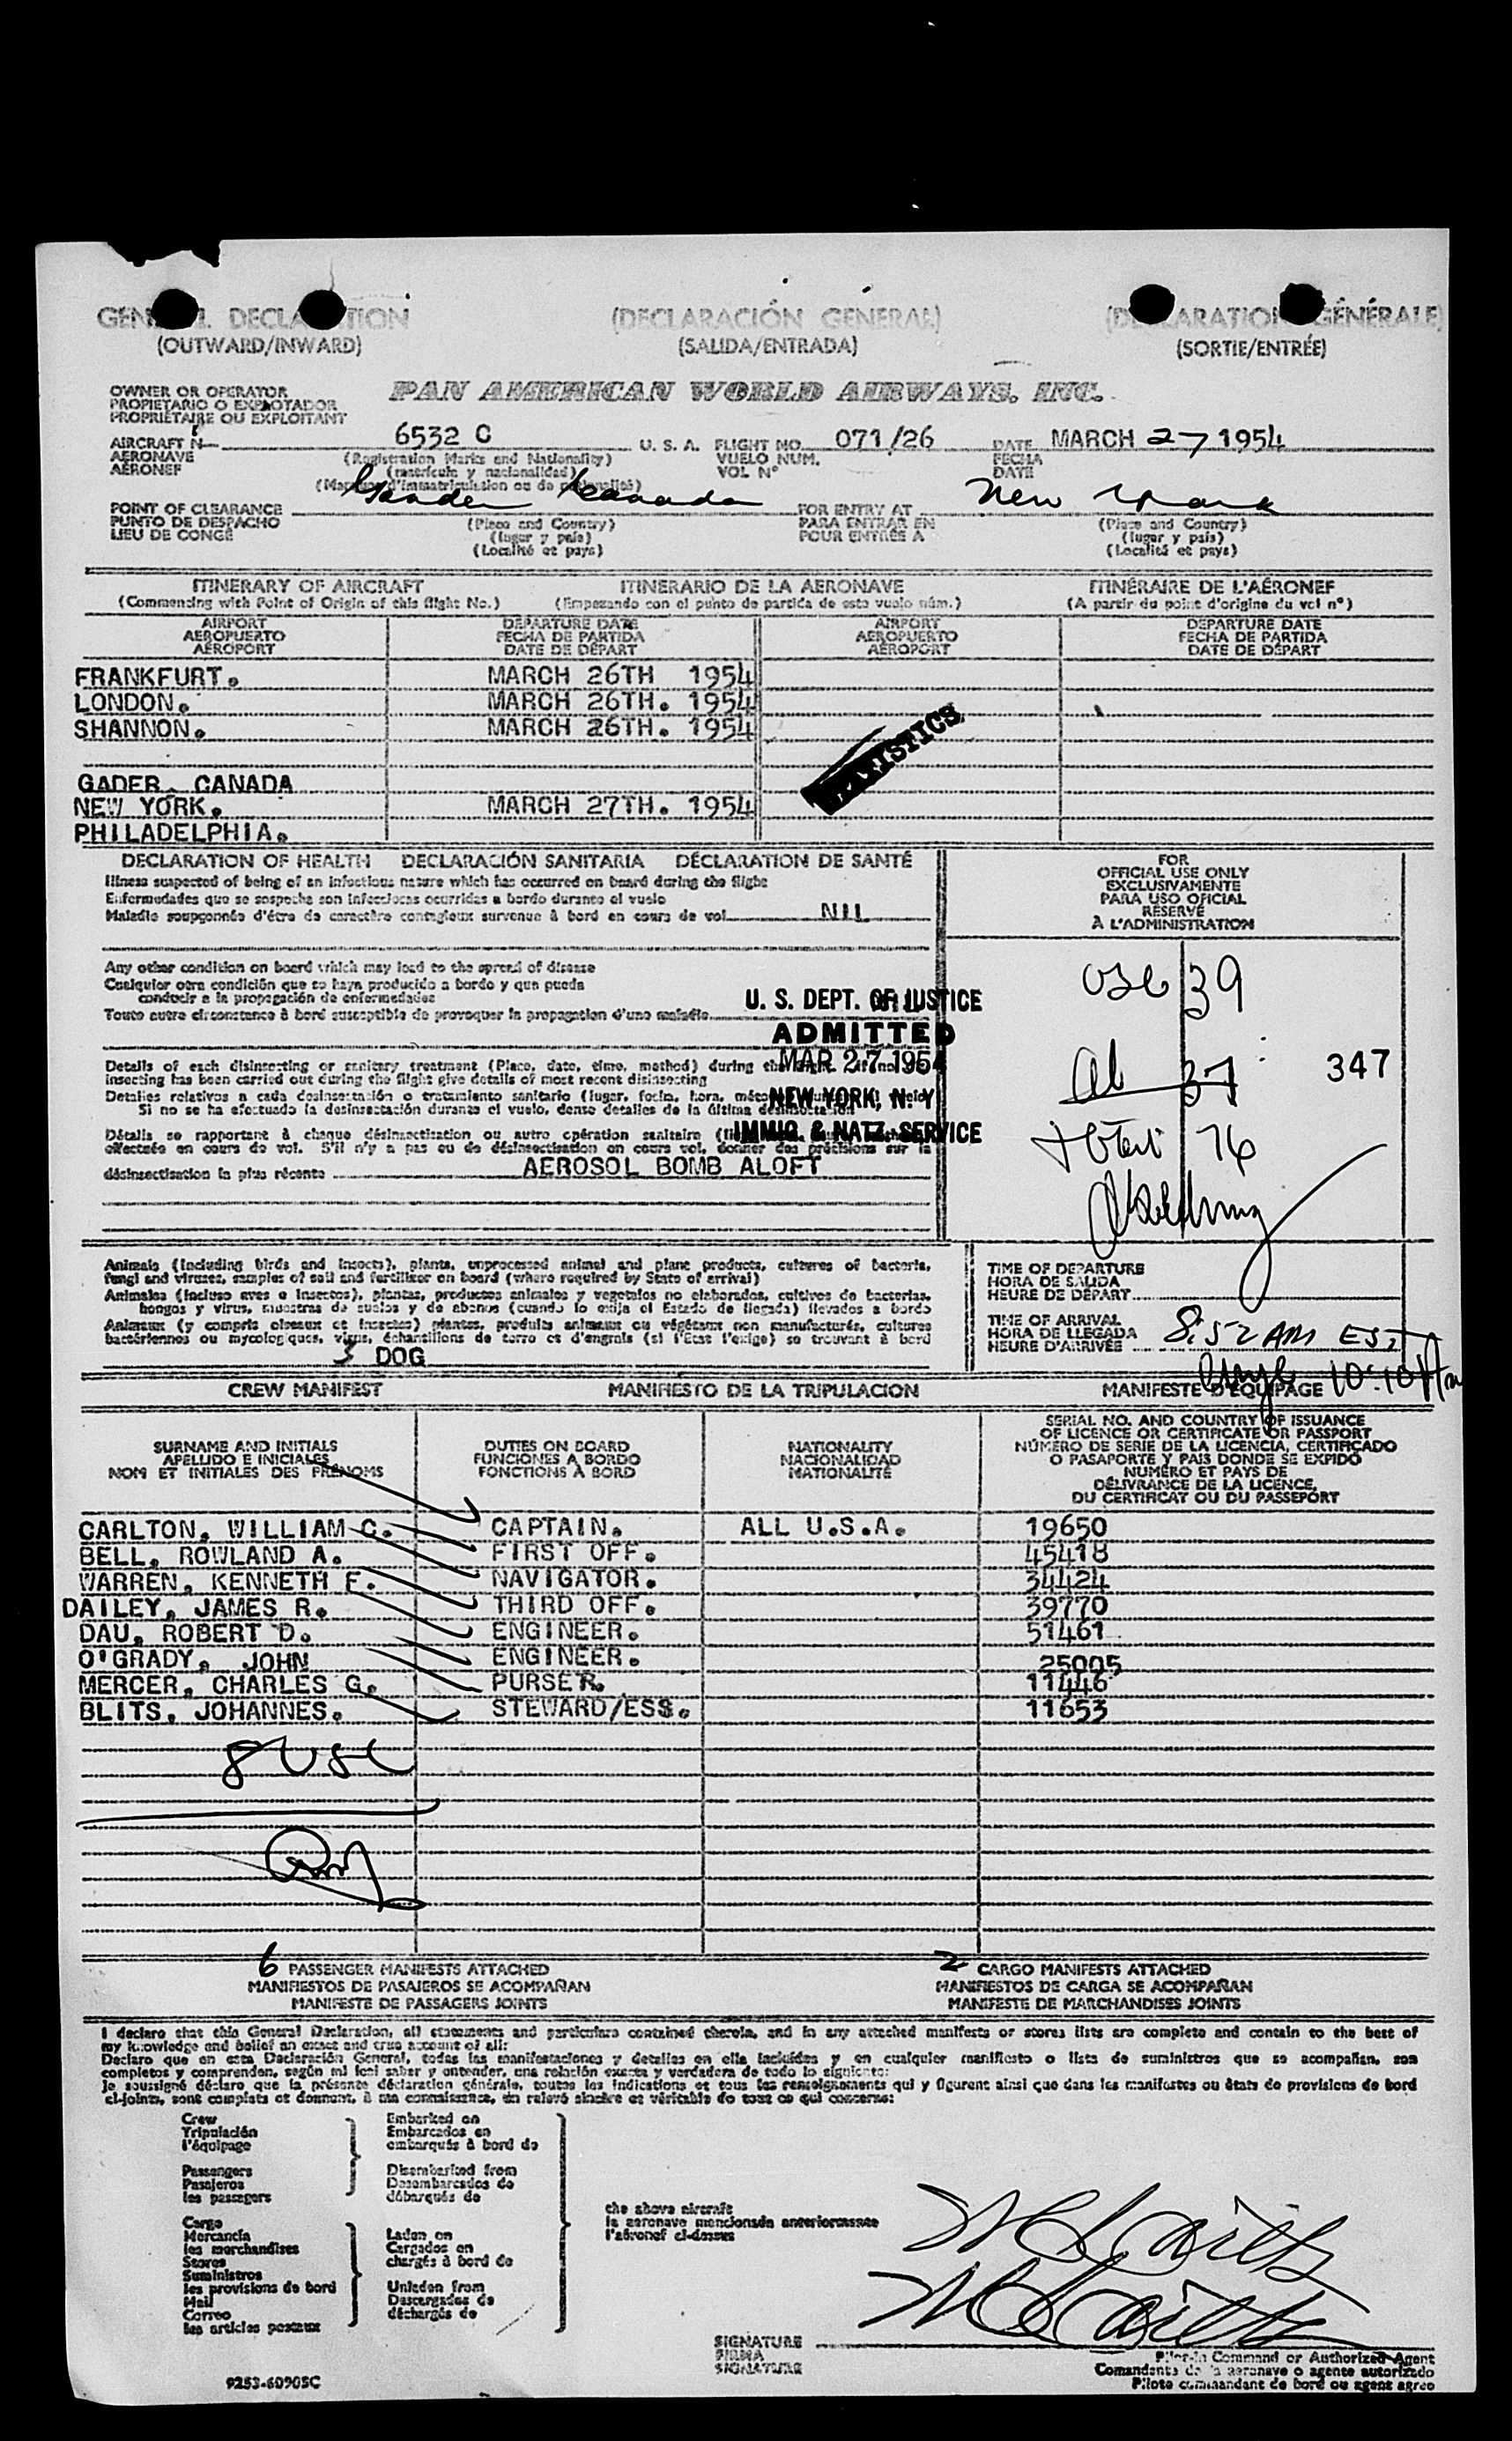 (DECLARACIÓN GENERAL)
(OUTWARD/INWARD) (SALIDA/ENTRADA) (SORTIE/ENTRÉE)
OWNER OR OPERATOR
PROPIETARIO O EXPLOTADOR
PROPRIÉTAIRE OU EXPLOITANT
PAN AMERICAN WORLD AIRWAYS, INC.
AIRCRAFT N 6532 C U. S. A. FLIGHT NO. 071/26 DATE MARCH 27 1954
AERONAVE (Registration Marks and Nationality) VUELO NUM. FECHA
AÉRONEF (matrícula y nacionalidad) VOL N° DATE
POINT OF CLEARANCE Gander Canada FOR ENTRY AT New York
PUNTO DE DESPACHO (Place and Country) PARA ENTRAR EN (Place and Country)
LIEU DE CONGÉ (lugar y país) POUR ENTRÉE A (lugar y país)
(Localité et pays) (Localité et pays)
ITINERARY OF AIRCRAFT ITINERARIO DE LA AERONAVE ITINÉRAIRE DE L'AÉRONEF
(Commencing with Point of Origin of this flight No.) (Empezando con el punto de partida de este vuelo núm.) (A partir du point d'origine du vol n°)
AIRPORT DEPARTURE DATE AIRPORT DEPARTURE DATE
AEROPUERTO FECHA DE PARTIDA AEROPUERTO FECHA DE PARTIDA
AÉROPORT DATE DE DÉPART AÉROPORT DATE DE DÉPART
FRANKFURT. MARCH 26TH 1954
LONDON. MARCH 26TH. 1954
SHANNON. MARCH 26TH. 1954
GADER, CANADA
NEW YORK. MARCH 27TH. 1954
PHILADELPHIA.
DECLARATION OF HEALTH DECLARACIÓN SANITARIA DÉCLARATION DE SANTÉ
Illness suspected of being of an infectious nature which has occurred on board during the flight
Enfermedades que se sospecha son infecciosas ocurridas a bordo durante el vuelo
Maladie soupçonnée d'être de caractère contagieux survenue à bord en cours de vol NIL
FOR
OFFICIAL USE ONLY
EXCLUSIVAMENTE
PARA USO OFICIAL
RÉSERVÉ
À L'ADMINISTRATION
Any other condition on board which may lead to the spread of disease
Cualquier otra condición que se haya producido a bordo y que pueda
conducir a la propagación de enfermedades
Toute autre circonstance à bord susceptible de provoquer la propagation d'une maladie
U. S. DEPT. OF JUSTICE
ADMITTED
MAR 27 1954
NEW YORK, N. Y.
IMMIG. & NATZ. SERVICE
Details of each disinsecting or sanitary treatment (Place, date, time, method) during the
insecting has been carried out during the flight give details of most recent disinsecting
Detalles relativos a cada desinsectación o tratamiento sanitario (lugar, fecha, hora,
Si no se ha efectuado la desinsectación durante el vuelo, dense detalles de la última desinsectación
Détails se rapportant à chaque désinsectisation ou autre opération sanitaire
effectuée en cours de vol. S'il n'y a pas eu de désinsectisation en cours vol, donner des précisions sur la
désinsectisation la plus récente AEROSOL BOMB ALOFT
USC 39
Al 37
347
Total 76
Animals (including birds and insects), plants, unprocessed animal and plant products, cultures of bacteria,
fungi and viruses, samples of soil and fertilizer on board (where required by State of arrival)
Animales (incluso aves o insectos), plantas, productos animales y vegetales no elaborados, cultivos de bacterias,
hongos y virus, muestras de suelos y de abonos (cuando lo exija el Estado de llegada) llevados a bordo
Animaux (y compris oiseaux et insectes) plantes, produits animaux ou végétaux non manufacturés, cultures
bactériennes ou mycologiques, virus, échantillons de terre et d'engrais (si l'État l'exige) se trouvant à bord
3 DOG
TIME OF DEPARTURE
HORA DE SALIDA
HEURE DE DÉPART
TIME OF ARRIVAL
HORA DE LLEGADA
HEURE D'ARRIVÉE 8:52 AM EST
10:10 Am
CREW MANIFEST MANIFIESTO DE LA TRIPULACION MANIFESTE D'ÉQUIPAGE
SURNAME AND INITIALS
APELLIDO E INICIALES
NOM ET INITIALES DES PRÉNOMS
DUTIES ON BOARD
FUNCIONES A BORDO
FONCTIONS À BORD
NATIONALITY
NACIONALIDAD
NATIONALITÉ
SERIAL NO. AND COUNTRY OF ISSUANCE
OF LICENCE OR CERTIFICATE OR PASSPORT
NÚMERO DE SERIE DE LA LICENCIA, CERTIFICADO
O PASAPORTE Y PAIS DONDE SE EXPIDÓ
NUMÉRO ET PAYS DE
DÉLIVRANCE DE LA LICENCE,
DU CERTIFICAT OU DU PASSEPORT
CARLTON, WILLIAM C. CAPTAIN. ALL U.S.A. 19650
BELL, ROWLAND A. FIRST OFF. 45418
WARREN, KENNETH F. NAVIGATOR. 34424
DAILEY, JAMES R. THIRD OFF. 39770
DAU, ROBERT D. ENGINEER. 51461
O'GRADY, JOHN ENGINEER. 25005
MERCER, CHARLES G. PURSER. 11446
BLITS, JOHANNES. STEWARD/ESS. 11653
8 USC
6 PASSENGER MANIFESTS ATTACHED 2 CARGO MANIFESTS ATTACHED
MANIFIESTOS DE PASAJEROS SE ACOMPAÑAN MANIFIESTOS DE CARGA SE ACOMPAÑAN
MANIFESTE DE PASSAGERS JOINTS MANIFESTE DE MARCHANDISES JOINTS
I declare that this General Declaration, all statements and particulars contained therein, and in any attached manifests or stores lists are complete and contain to the best of
my knowledge and belief an exact and true account of all:
Declaro que en esta Declaración General, todas las manifestaciones y detalles en ella incluídas y en cualquier manifiesto o lista de suministros que se acompañan, son
completos y comprenden, según mi leal saber y entender, una relación exacta y verdadera de todo lo siguiente:
Je soussigné déclare que la présente déclaration générale, toutes les indications et tous les renseignements qui y figurent ainsi que dans les manifestes ou états de provisions de bord
ci-joints, sont complets et donnent, à ma connaissance, un relevé sincère et véritable de tout ce qui concerne:
Crew
Tripulación
l'équipage
Passengers
Pasajeros
les passagers
Cargo
Mercancía
les marchandises
Stores
Suministros
les provisions de bord
Mail
Correo
les articles postaux
Embarked on
Embarcados en
embarqués à bord de
Disembarked from
Desembarcados de
débarqués de
Laden on
Cargados en
chargés à bord de
Unladen from
Descargados de
déchargés de
the above aircraft
la aeronave mencionada anteriormente
l'aéronef ci-dessus
SIGNATURE
FIRMA
SIGNATURE
Pilot-in Command or Authorized Agent
Comandante de la aeronave o agente autorizado
Pilote commandant de bord ou agent agréé
9253-60905C